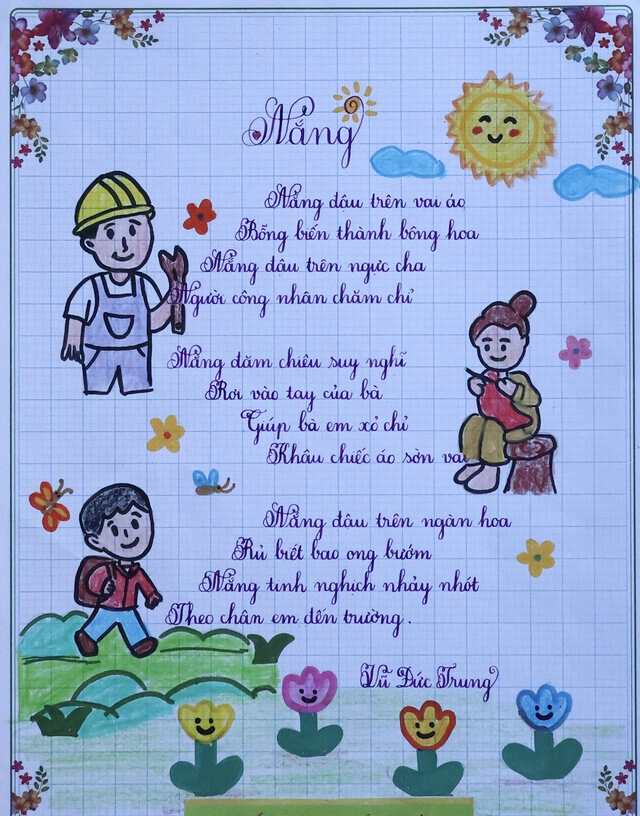 Nắng
Nắng đậu trên vai áo
Bỗng biến thành bông hoa
Nắng đậu trên ngực cha
Người công nhân chăm chỉ
Nắng đăm chiêu suy nghĩ
Rơi vào tay của bà
Giúp bà em xỏ chỉ
Khâu chiếc áo sờn vai
Nắng đậu trên ngàn hoa
Rủ biết bao ong bướm
Nắng tinh nghịch nhảy nhót
Theo chân em đến trường.
Vũ Đức Trung